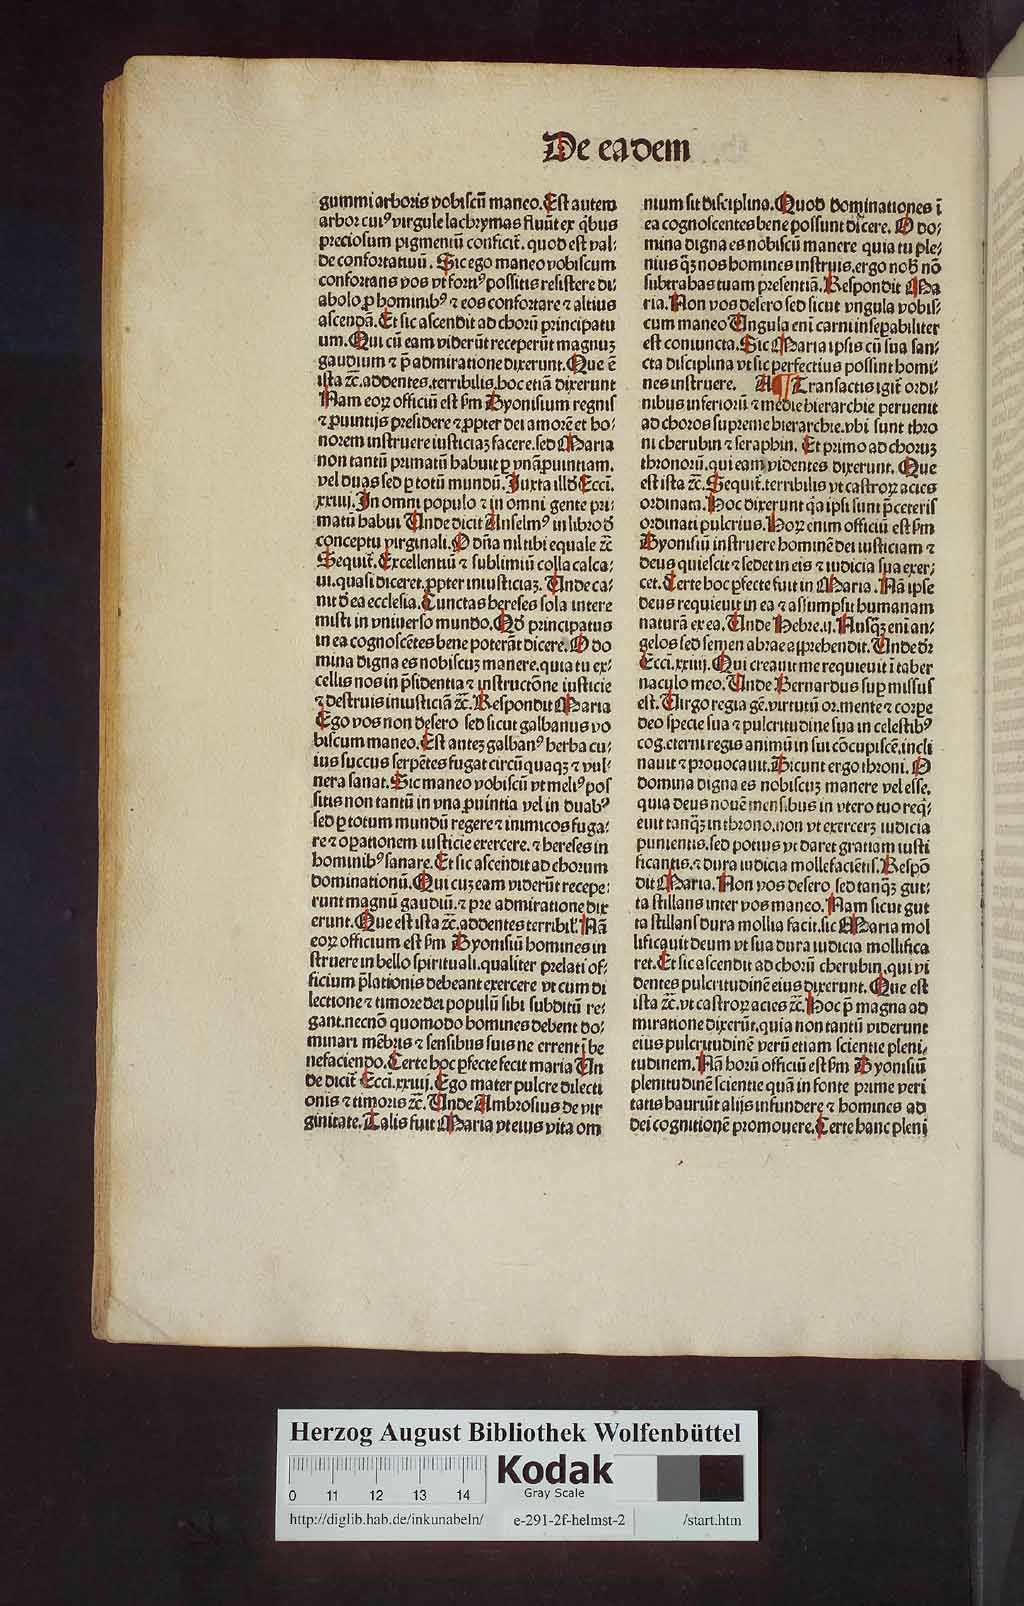 De eadem
gummi arboris vobiscū maneo. Est autem
arbor cuiꝰ virgule lachrymas fluūt ex q̄bus
preciosum pigmentū conficit̄. quod est val-
de confortatiuū. Sic ego maneo vobiscum
confortans vos vt fortiꝰ possitis resistere di-
abolo ꝓ hominibꝰ ⁊ eos confortare ⁊ altius
ascendā. Et sic ascendit ad chorū principatu
um. Qui cū eam viderūt receperūt magnuꝫ
gaudium ⁊ p̄ admiratione dixerunt. Que ē
ista ⁊c̄. addentes. terribilis. hoc etiā dixerunt
Nam eoꝝ officiū est ẜm Dyonisium regnis
⁊ ꝓuintijs presidere ⁊ ꝓpter dei amorē et ho-
norem instruere iusticiaꝫ facere. sed Maria
non tantū primatū habuit ꝑ vnā ꝓuintiam.
vel duas sed ꝑ totū mundū. Juxta illd̓ Ecci.
xxiiij. In omni populo ⁊ in omni gente pri-
matū habui. Unde dicit Anselmꝰ in libro d̓
conceptu virginali. O dn̄a nil tibi equale ⁊c̄
Sequit̄. Excellentiū ⁊ sublimiū colla calca-
ui. quasi diceret. ꝓpter iniusticiaꝫ. Unde ca-
nit d̓ ea ecclesia. Cunctas hereses sola intere
misti in vniuerso mundo. Qd̓ principatus
in ea cognoscētes bene poterāt dicere. O do
mina digna es nobiscuꝫ manere. quia tu ex-
cellis nos in p̄sidentia ⁊ instructōne iusticie
⁊ destruis iniusticiā ⁊c̄. Respondit Maria
Ego vos non desero sed sicut galbanus vo
biscum maneo. Est auteꝫ galbanꝰ herba cu-
ius succus serpētes fugat circū quaqꝫ ⁊ vul-
nera sanat. Sic maneo vobiscū vt meliꝰ pos
sitis non tantū in vna ꝓuintia vel in duabꝰ
sed ꝑ totum mundū regere ⁊ inimicos fuga-
re ⁊ opationem iusticie exercere. ⁊ hereses in
hominibꝰ sanare. Et sic ascendit ad chorum
dominationū. Qui cuꝫ eam viderūt recepe-
runt magnū gaudiū. ⁊ pre admiratione dix
erunt. Que est ista ⁊c̄. addentes terribil̓. Nā
eoꝝ officium est ẜm Dyonisiū homines in
struere in bello spirituali. qualiter prelati of-
ficium p̄lationis debeant exercere vt cum di
lectione ⁊ timore dei populū sibi subditū re-
gant. necnō quomodo homines debent do-
minari mēbris ⁊ sensibus suis ne errent ī be
nefaciendo. Certe hoc ꝑfecte fecit maria Un
de dicit̄ Ecci. xxiiij. Ego mater pulcre dilecti
onis ⁊ timoris ⁊c̄. Unde Ambrosius de vir
ginitate. Talis fuit Maria vt eius vita om
nium sit disciplina. Quod dominationes ī
ea cognoscentes bene possunt dicere. O do-
mina digna es nobiscū manere quia tu ple-
nius qꝫ nos homines instruis. ergo nob̓ nō
subtrahas tuam presentiā. Respondit Ma
ria. Non vos desero sed sicut vngula vobis-
cum maneo Ungula eni carni inseꝑabiliter
est coniuncta. Sic Maria ipsis cū sua san-
cta disciplina vt sic perfectius possint homi-
nes instruere. Transactis igit̄ ordi-
nibus inferiorū ⁊ medie hierarchie peruenit
ad choros supreme hierarchie. vbi sunt thro
ni cherubin ⁊ seraphin. Et primo ad choruꝫ
thronorū. qui eam videntes dixerunt. Que
est ista ⁊c̄. Sequit̄. terribilis vt castroꝝ acies
ordinata. Hoc dixerunt q̄a ipsi sunt p̄ ceteris
ordinati pulcrius. Hoꝝ enim officiū est ẜm
Dyonisiū instruere hominē dei iusticiam ⁊
deus quiescit ⁊ sedet in eis ⁊ iudicia sua exer-
cet. Certe hoc ꝑfecte fuit in Maria. Nā ipse
deus requieuit in ea ⁊ assumpsit humanam
naturā ex ea. Unde Hebre. ij. Nusqꝫ eni an-
gelos sed semen abrae apprehendit. Unde dr̄
Ecci. xxiiij. Qui creauit me requieuit ī taber
naculo meo. Unde Bernardus suꝑ missus
est. Virgo regia gē. virtutū or. mente ⁊ corpe
deo specie sua ⁊ pulcritudine sua in celestibꝰ
cog. eterni regis animū in sui cōcupiscē. incli
nauit ⁊ prouocauit. Dicunt ergo throni. O
domina digna es nobiscuꝫ manere vel esse.
quia deus nouē mensibus in vtero tuo req̄-
euit tanqꝫ in throno. non vt exerceꝫ iudicia
punientis. sed potius vt daret gratiam iusti
ficantis. ⁊ dura iudicia mollefaciētis. Respō
dit Maria. Non vos desero sed tanqꝫ gut-
ta stillans inter vos maneo. Nam sicut gut
ta stillans dura mollia facit. sic Maria mol
lificauit deum vt sua dura iudicia mollifica
ret. Et sic ascendit ad chorū cherubin. qui vi
dentes pulcritudinē eius dixerunt. Que est
ista ⁊c̄. vt castroꝝ acies ⁊c̄. Hoc p̄ magna ad
miratione dixerūt. quia non tantū viderunt
eius pulcritudinē verū etiam scientie pleni-
tudinem. Nā horū officiū est ẜm Dyonisiū
plenitudinē scientie quā in fonte prime veri
tatis hauriūt alijs infundere ⁊ homines ad
dei cognitionē promouere. Certe hanc pleni
Herzog August Bibliothek Wolfenbüttel
0 11 12 13 14
Kodak
Gray Scale
http://diglib.hab.de/inkunabeln/ e-291-2f-helmst-2 /start.htm